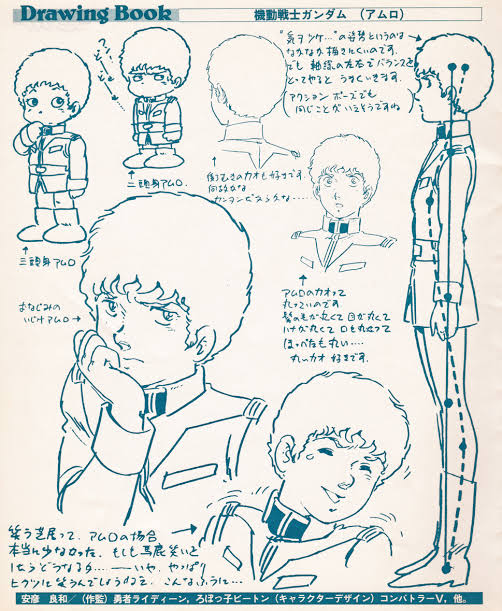 Drawing Book
機動戦士ガンダム (アムロ)
"気ヲツケ…"の姿勢というのは
なかなか描きにくいのです。
でも 軸線の左右でバランスを
とってやると うまくいきます。
(アクションポーズでも
同じことがいえそうですね
?
↑
二頭身アムロ.
↑
三頭身アムロ
↑
カオも好きです.
カンタンだ
↑
アムロのカオって
丸っこいのです
髪の毛が丸くて 目が丸くて
ハナが丸くて 口も丸くって
ほっぺたも丸い…
丸いカオ 好きです.
おなじみの
いじけアムロ→
笑う芝居って、アムロの場合 →
本当に少なかった. もしも馬鹿笑いを
するか ――いや、やっぱり
ヒクツに笑うんでしょうねえ、こんなふうに…
安彦 良和/(作監)勇者ライディーン, ろぼっ子ビートン(キャラクターデザイン)コンバトラーV, 他。